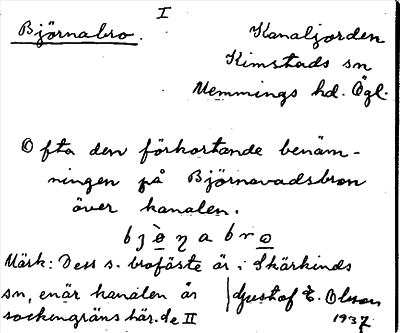 I
Björnabro.
Kanaljorden
Kimstads sn
Memmings hd. Ögl.
Ofta den förkortande benäm-
ningen på Björnavadsbron
över kanalen.
bjö̀ŋabro
Märk: Dess s. brofäste är i Skärkinds
sn, enär kanalen är
sockengräns här. de II
Gustaf E. Olson
1937